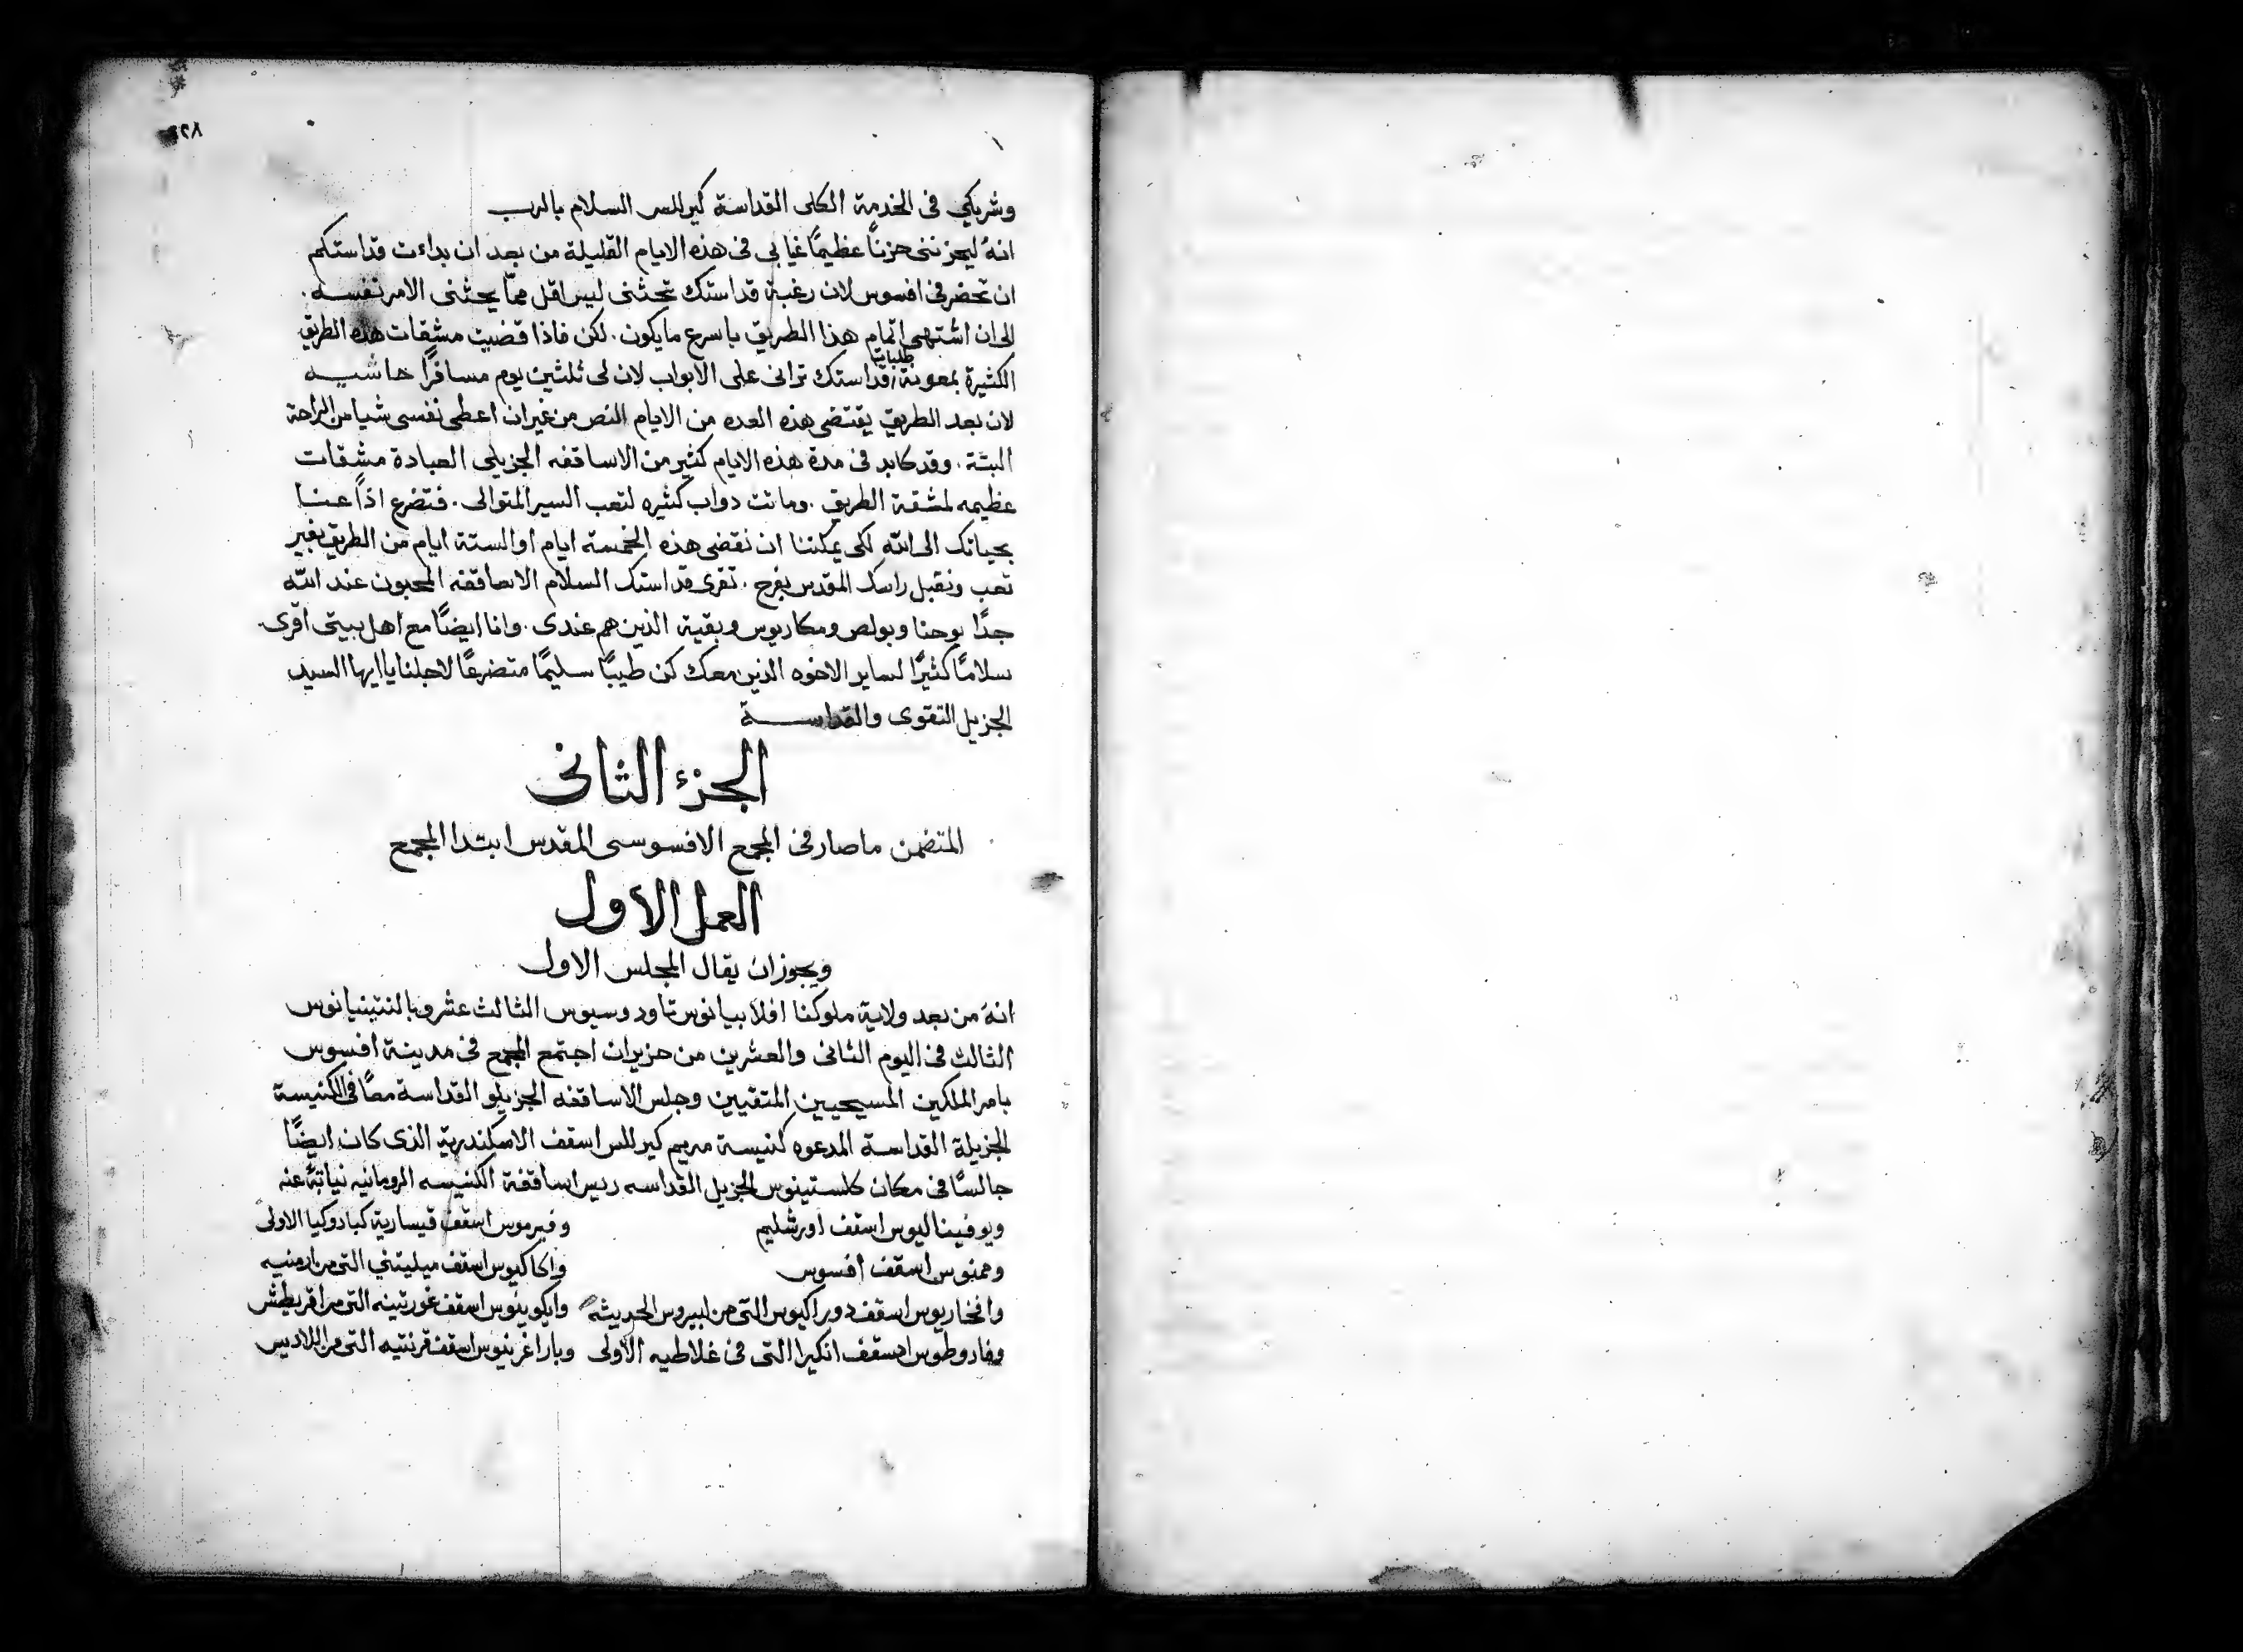 ١
وشريكي فى الخدمة الكلى القداسة كيرللس السلام بالرب
انهُ ليحزننى حزنًا عظيمًا غيابى فى هذه الايام القليلة من بعد ان بداءت قداستكم
ان تحضر فى افسوس لان رغبة قداستك تحثنى ليس اقل ممّا يحثنى الامر نفسه .
الى ان اشتهى اتمام هذا الطريق باسرع ما يكون . لكن فاذا قضيت مشقات هذه الطريق
الكثيرة بمعونة طلبات قداستك ترانى على الابواب لان لى ثلثين يوم مسافرًا ماشيه
لان بعد الطريق يقتضى هذه العده من الايام من غير ان اعطى نفسى شيا من الراحة
البتة . وقد كابد فى مدة هذه الايام كثير من الاساقفه الجزيلى العبادة مشقات
عظيمه لمشقة الطريق . وماتت دواب كثيره لتعب السير المتوالى . فتضرع اذًا عنا
بحياتك الى الله لكى يمكننا ان نقضى هذه الخمسة ايام او الستة ايام من الطريق بغير
تعب ونقبل راسك المقدس بفرح . تقرى قداستك السلام الاساقفه المحبون عند الله
جدًا يوحنا وبولص ومكاريوس وبقية الذين هم عندى . وانا ايضًا مع اهل بيتى اقرى
سلامًا كثيرًا لساير الاخوه الذين معك كن طيبًا سليمًا متضرعًا لاجلنا يا ايها السيد
الجزيل التقوى والقداسة
الجزء الثانى
المتضمن ما صار فى المجمع الافسوسى المقدس ابتدا المجمع
العمل الاول
ويجوز ان يقال المجلس الاول
انهُ من بعد ولاية ملوكنا افلابيانوس تاودوسيوس الثالث عشر وبالنتينيانوس
الثالث فى اليوم الثانى والعشرين من حزيران اجتمع المجمع فى مدينة افسوس
بامر الملكين المسيحيين المتقيين وجلس الاساقفه الجزيلو القداسة معًا فى الكنيسة
الجزيلة القداسة المدعوه كنيسة مريم كيرللس اسقف الاسكندرية الذى كان ايضًا
جالسًا فى مكان كلستينوس الجزيل القداسه رييس اساقفة الكنيسه الرومانيه نيابةً عنه
ويوفيناليوس اسقف اورشليم وفيرموس اسقف قيسارية كبادوكيا الاولى
وممنوس اسقف افسوس واكاكيوس اسقف ميليتني التى من ارمنيه
وافخاريوس اسقف دوراكيوس التى من ابيروس الحديثه وايكونيوس اسقف غورتينه التى من اقريطش
وفادوطوس اسقف انكيرا التى فى غلاطيه الاولى وباراغرينوس اسقف قرنتيه التى من اللاديس